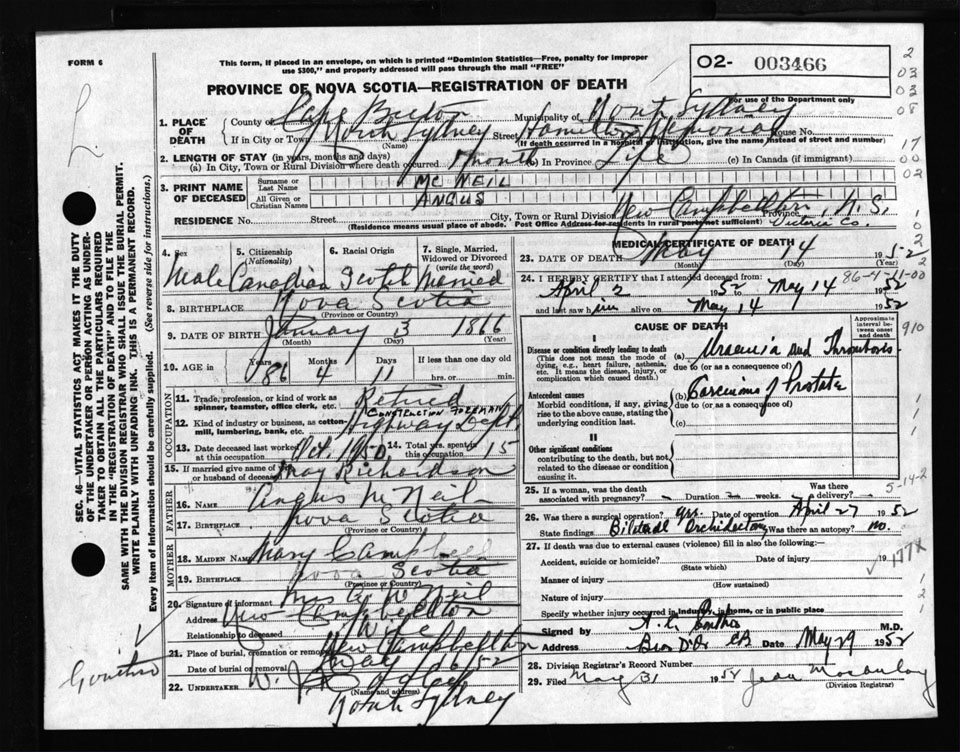 FORM 6
This form, if placed in an envelope, on which is printed "Dominion Statistics—Free, penalty for improper
use $300," and properly addressed will pass through the mail "FREE"
O2- 003466
PROVINCE OF NOVA SCOTIA—REGISTRATION OF DEATH
For use of the Department only
2
03
03
08
17
00
02
1. PLACE OF DEATH
County of Cape Breton Municipality of North Sydney
If in City or Town North Sydney (Name) Street Hamilton Memorial House No.
(If death occurred in a hospital or institution, give the name instead of street and number)
2. LENGTH OF STAY (in years, months and days)
(a) In City, Town or Rural Division where death occurred 1 month (b) In Province Life (c) In Canada (if immigrant)
3. PRINT NAME OF DECEASED
Surname or Last Name MC NEIL
All Given or Christian Names ANGUS
RESIDENCE No. Street City, Town or Rural Division New Campbellton, N.S. Province
Victoria Co.
(Residence means usual place of abode. Post Office Address for residents in rural parts not sufficient)
4. Sex Male
5. Citizenship (Nationality) Canadian
6. Racial Origin Scotch
7. Single, Married, Widowed or Divorced (write the word) Married
8. BIRTHPLACE Nova Scotia
(Province or Country)
9. DATE OF BIRTH January 3 1866
(Month) (Day) (Year)
10. AGE in Years 86 Months 4 Days 11 If less than one day old
hrs. or min.
OCCUPATION
11. Trade, profession, or kind of work as spinner, teamster, office clerk, etc. Retired
CONSTRUCTION FOREMAN
12. Kind of industry or business, as cotton-mill, lumbering, bank, etc. Highway Dept
13. Date deceased last worked at this occupation Oct. 1950 14. Total yrs. spent in this occupation 15
15. If married give name of wife or husband of deceased May Richardson
FATHER
16. NAME Angus McNeil
17. BIRTHPLACE Nova Scotia
(Province or Country)
MOTHER
18. MAIDEN NAME Mary Campbell
19. BIRTHPLACE Nova Scotia
(Province or Country)
20. Signature of informant Mrs A McNeil
Address New Campbellton
Relationship to deceased Wife
21. Place of burial, cremation or removal New Campbellton
Date of burial or removal May 16/52
22. UNDERTAKER W. J.
(Name and address)
North Sydney
SEC. 46—VITAL STATISTICS ACT MAKES IT THE DUTY
OF THE UNDERTAKER OR PERSON ACTING AS UNDER-
TAKER TO OBTAIN ALL THE PARTICULARS REQUIRED
IN THE "REGISTRATION OF DEATH" AND TO FILE THE
SAME WITH THE DIVISION REGISTRAR WHO SHALL ISSUE THE BURIAL PERMIT.
WRITE PLAINLY WITH UNFADING INK. THIS IS A PERMANENT RECORD.
Every item of information should be carefully supplied. (See reverse side for instructions.)
MEDICAL CERTIFICATE OF DEATH
23. DATE OF DEATH May 14 1952
(Month) (Day) (Year)
86-4-11-00
24. I HEREBY CERTIFY that I attended deceased from:
April 2 1952 to May 14 1952
and last saw him alive on May 14 1952
CAUSE OF DEATH
Approximate interval between onset and death
910
I
Disease or condition directly leading to death
(This does not mean the mode of dying, e.g., heart failure, asthenia, etc. It means the disease, injury, or complication which caused death.)
(a) Uraemia and Thrombosis
due to (or as a consequence of)
Antecedent causes
Morbid conditions, if any, giving rise to the above cause, stating the underlying condition last.
(b) Carcinoma of Prostate
due to (or as a consequence of)
(c)
II
Other significant conditions contributing to the death, but not related to the disease or condition causing it.
25. If a woman, was the death associated with pregnancy? - Duration weeks. Was there a delivery? -
5-14-2
26. Was there a surgical operation? yes. Date of operation April 27 1952
State findings Bilateral Orchidectomy Was there an autopsy? no.
27. If death was due to external causes (violence) fill in also the following:—
Accident, suicide or homicide? Date of injury 19
(State which)
177X
Manner of injury
(How sustained)
Nature of injury
Specify whether injury occurred in industry, in home, or in public place
Signed by M.D.
Address Bras D'Or CB Date May 29 1952
28. Division Registrar's Record Number
29. Filed May 31 195 Jean
(Division Registrar)